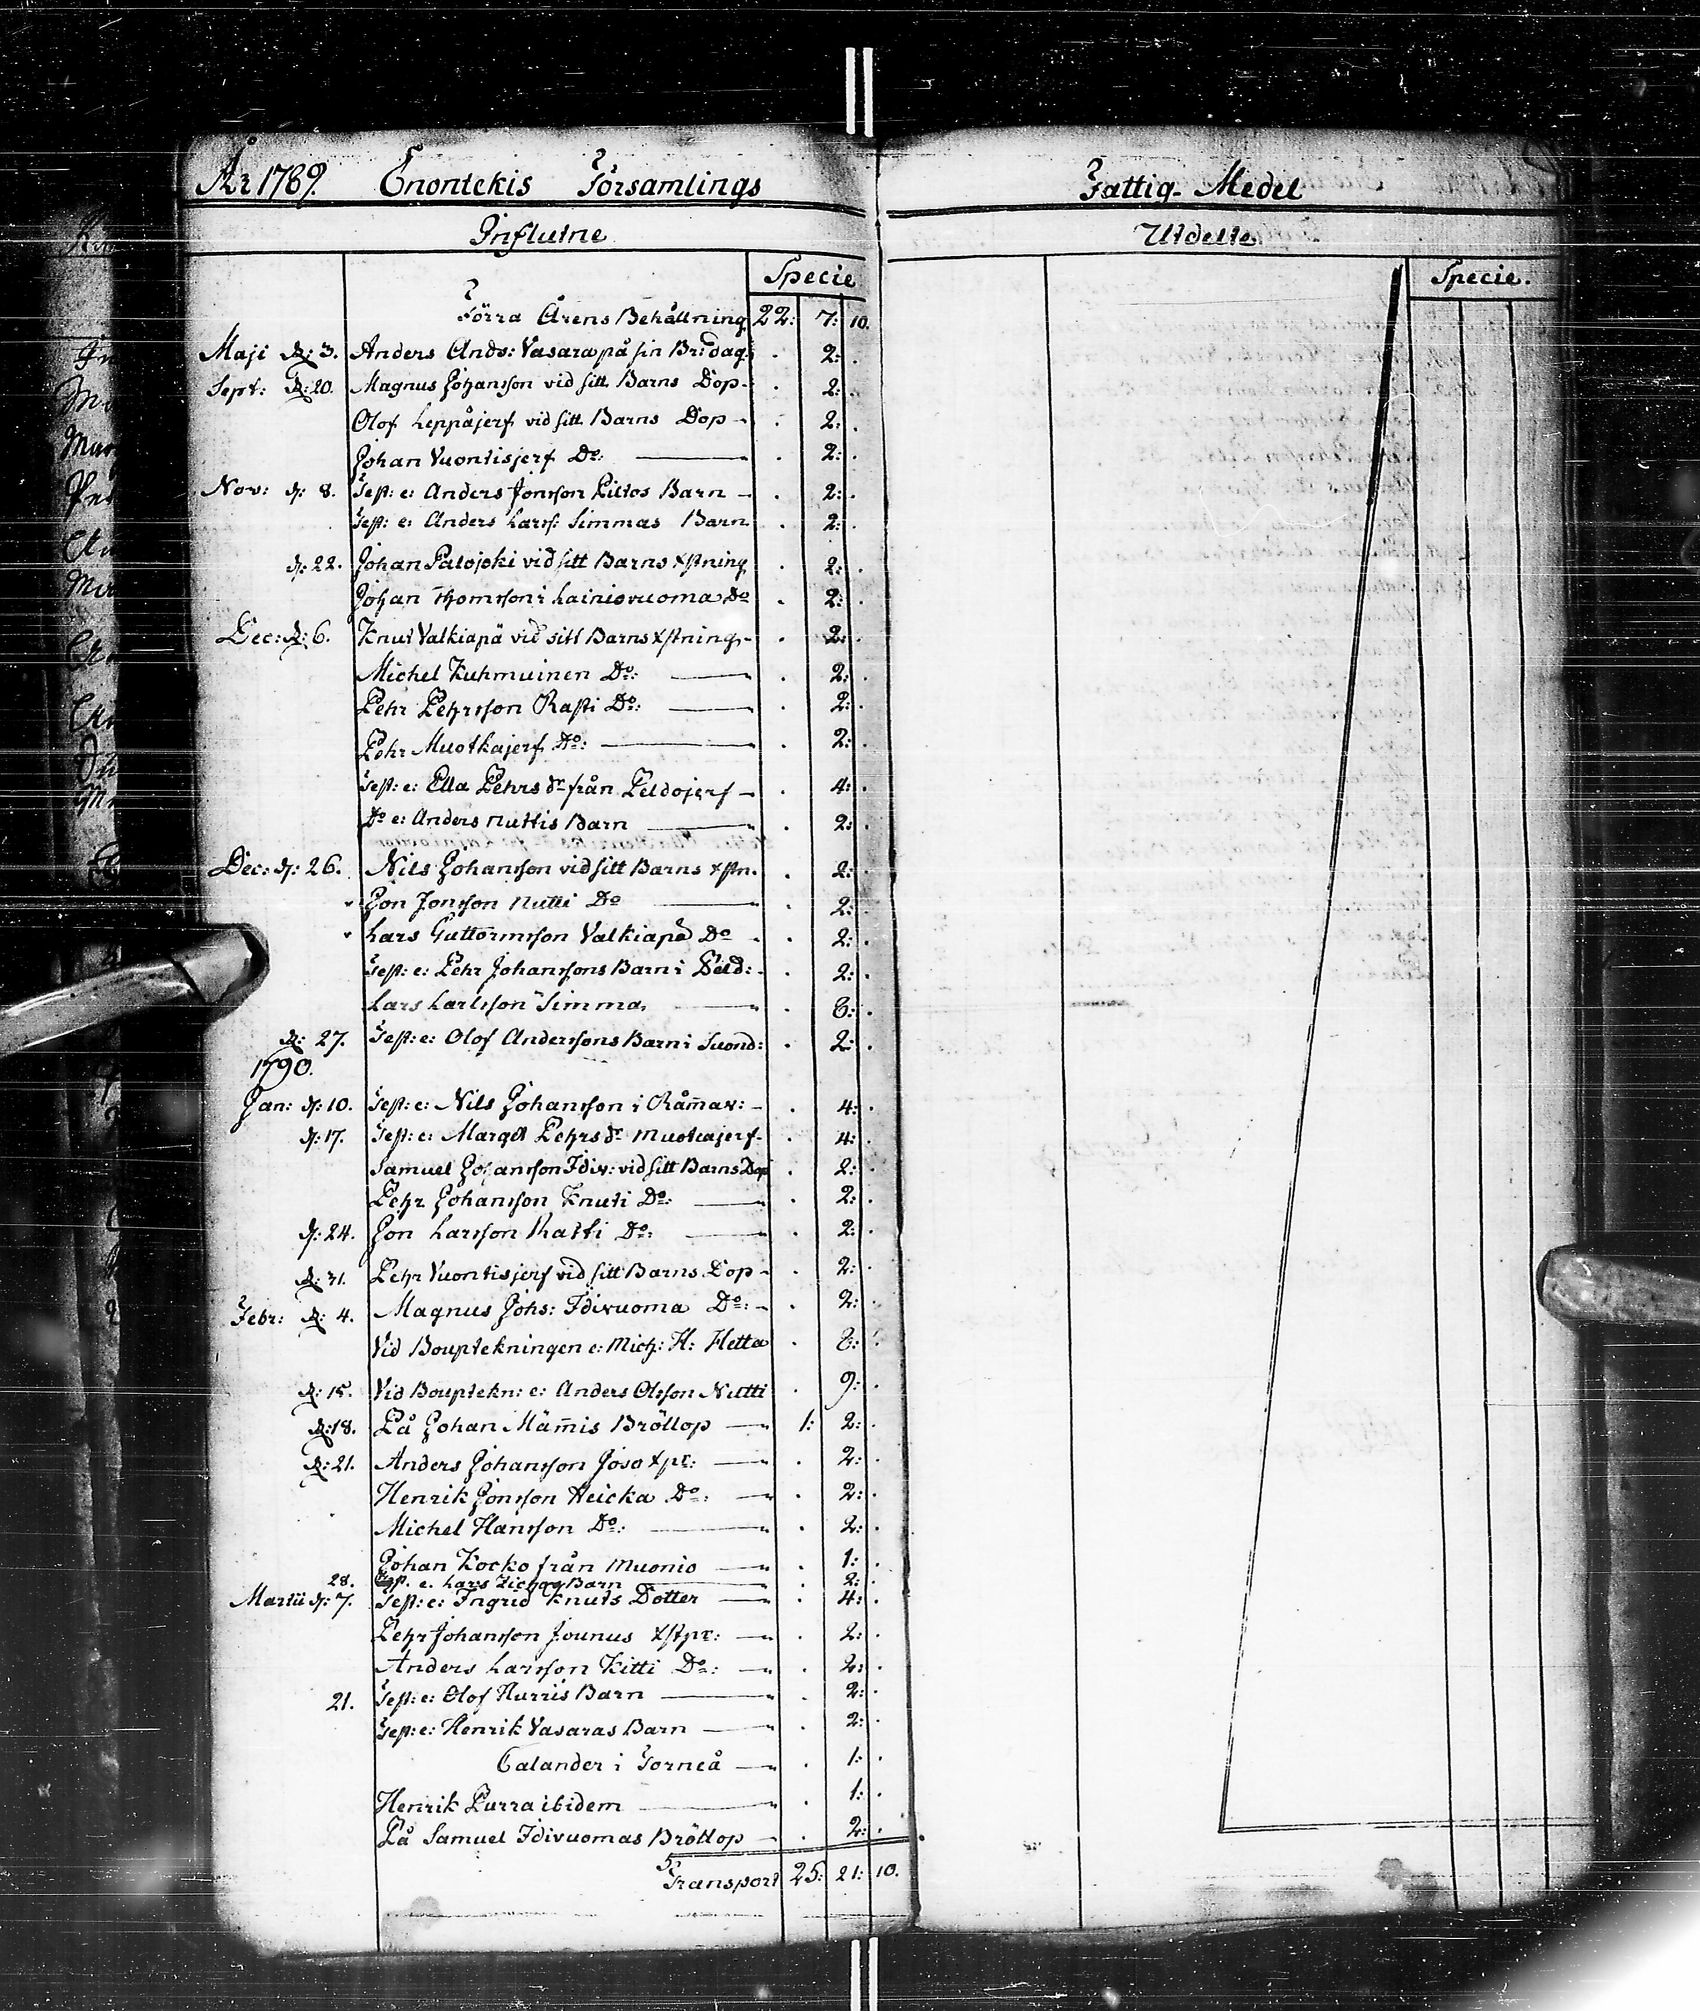 År 1789. Enontekis Församlings
Influtne
Specie
Förra Årens Behållning 22: 7: 10.
Maji d: 3. Anders Ands: Vasara på sin Br: dag. . 2: .
Sept: d: 20. Magnus Johansson vid sitt Barns Dop - . 2: .
Olof Leppäjerf vid sitt Barns Dop - . 2: .
Johan Vuontisjerf Do: — . 2: .
Nov: d: 8. Test: e: Anders Jonsson Piltos Barn - . 2: .
Test: e: Anders Larss: Simmas Barn . 2: .
d: 22. Johan Palojoki vid sitt Barns xstning . 2: .
Johan Thomsson i Lainiovuoma Do . 2: .
Dec: d: 6. Knut Valkiapä vid sitt Barns xstning - . 2: .
Michel Kuhmuinen Do: — . 2: .
Pehr Pehrsson Rasti Do: — . 2: .
Pehr Muotkajerf Do: — . 2: .
Test: e: Ella Pehrs dr från Peldojerf - . 4: .
Do e: Anders Nuttis Barn — . 2: .
Dec: d: 26. Nils Johansson vid sitt Barns xstn. . 2: .
Jon Jonsson Nutti Do — . 2: .
Lars Guttormsson Valkiapä Do - . 2: .
Test: e: Pehr Johanssons Barn i Peld: - . 2: .
Lars Larsson Simma — . 8: .
d: 27. Test: e: Olof Anderssons Barn i Suond: . 2: .
1790.
Jan: d: 10. Test: e: Nils Johansson i Råmav: - . 4: .
d: 17. Test: e: Margt Pehrs dr Muotkajerf - . 4: .
Samuel Johansson Idiv: vid sitt Barns Dop . 2: .
Pehr Johansson Knuti Do: — . 2: .
d: 24. Jon Larsson Ratti Do: — . 2: .
d: 31. Pehr Vuontisjerf vid sitt Barns Dop - . 2: .
Febr: d: 4. Magnus Johs: Idivuoma Do: - . 2: .
Vid Bouptekningen e: Mich: H: Hetta . 8: .
d: 15. Vid Bouptekn: e: Anders Olsson Nutti . 9: .
d: 18. På Johan Mämmis Bröllop — 1: 2: .
d: 21. Anders Johansson Joso xpr: — . 2: .
Henrik Jonsson Heicka Do: — . 2: .
Michel Hansson Do: — . 2: .
Johan Kocko från Muonio — . 1: .
28. Test. e. Lars Barn — . 2: .
Martii d: 7. Test: e: Ingrid Knuts Dotter — . 4: .
Pehr Johansson Jounus xstpr: — . 2: .
Anders Larsson Kitti Do: — . 2: .
21. Test: e: Olof Hurris Barn — . 2: .
Test: e: Henrik Vasaras Barn — . 2: .
Calander i Torneå — . 1: .
Henrik Purra ibidem — . 1: .
På Samuel Idivuomas Bröllop — . 2: .
Transport 25: 21: 10.
Fattig-Medel
Utdelte
Specie.